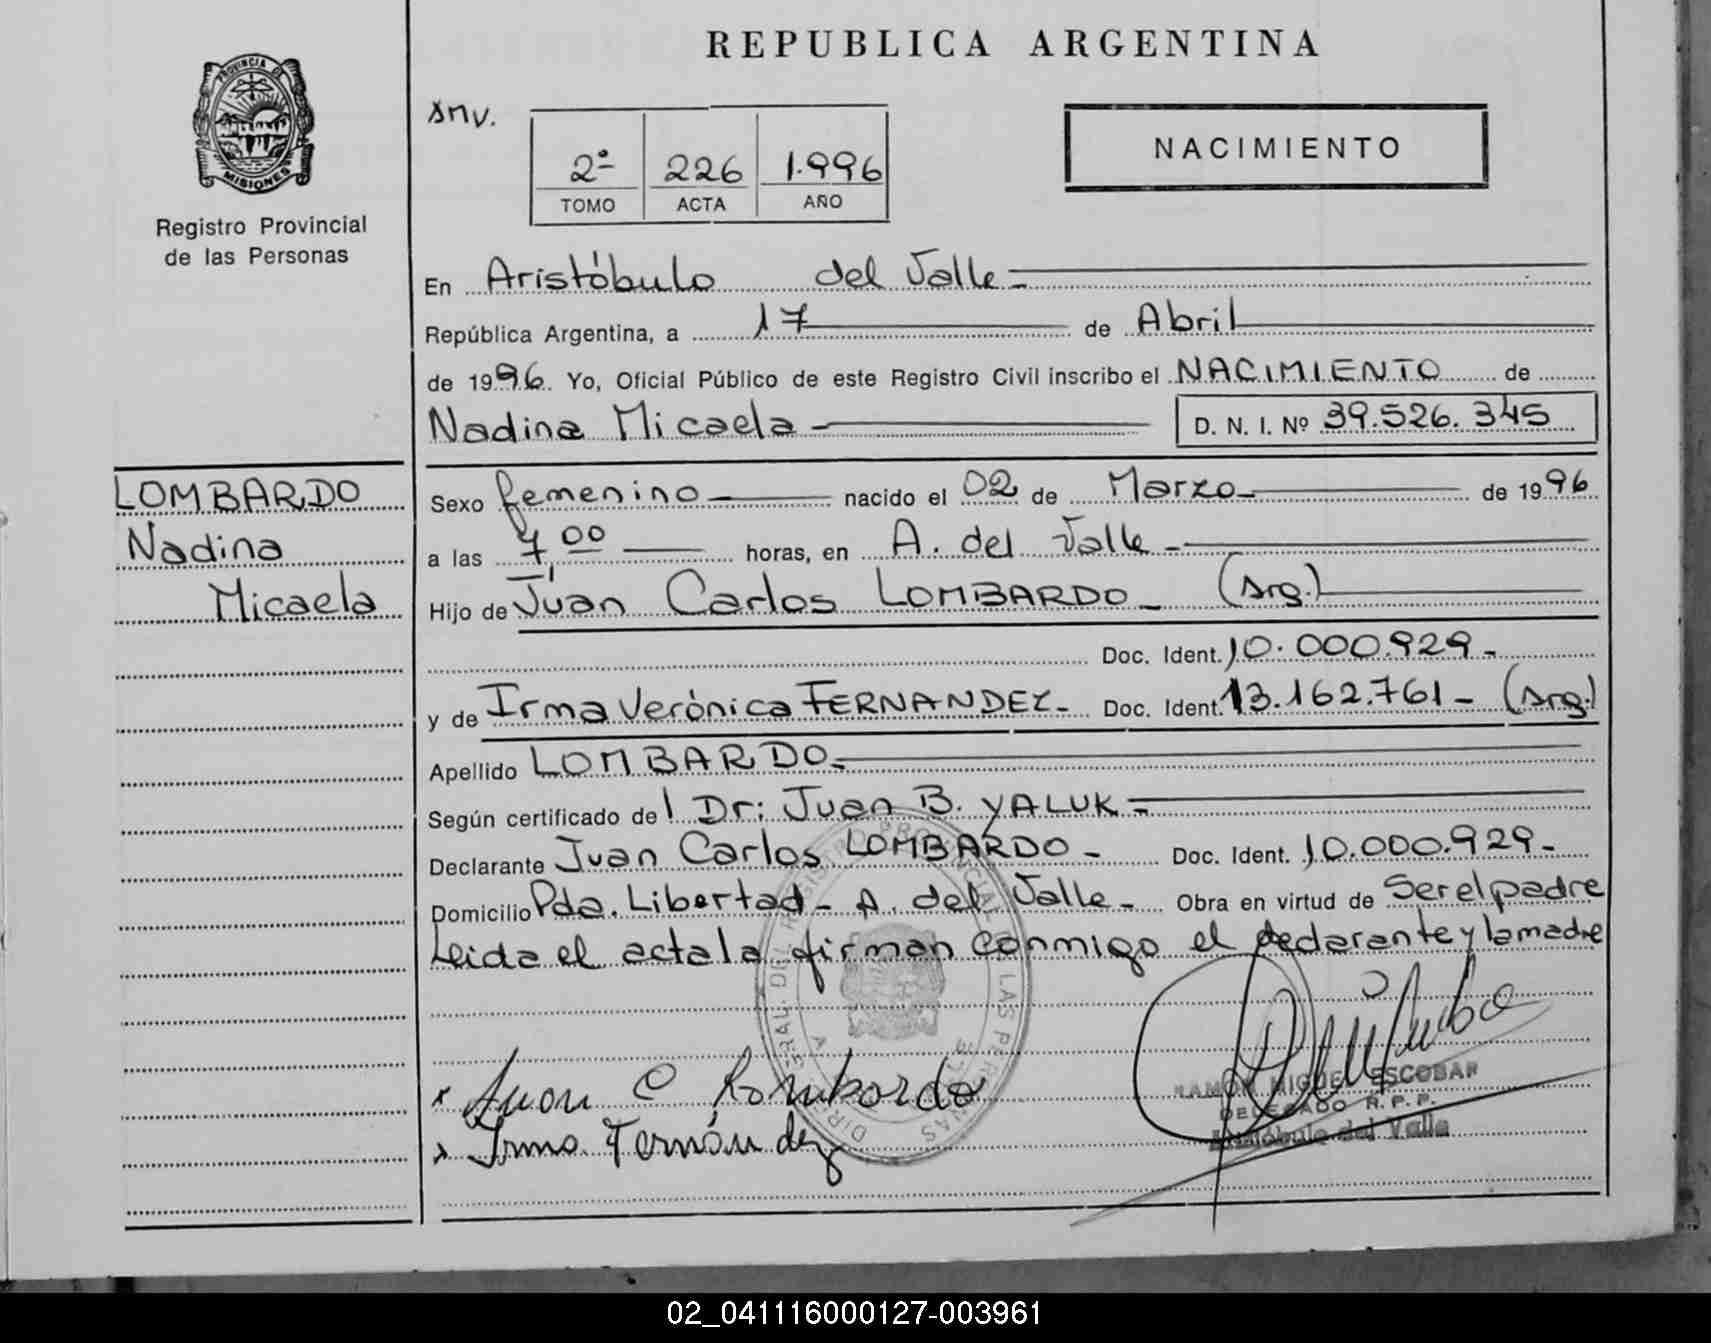 REPUBLICA ARGENTINA
PROVINCIA DE
MISIONES
Registro Provincial
de las Personas
snv.
2º 226 1.996
TOMO ACTA AÑO
NACIMIENTO
En Aristóbulo del Valle -
República Argentina, a 17 de Abril
de 1996. Yo, Oficial Público de este Registro Civil inscribo el NACIMIENTO de
Nadina Micaela - D. N. I. Nº 39.526.345
LOMBARDO
Nadina
Micaela
Sexo femenino nacido el 02 de Marzo de 1996
a las 7,00 horas, en A. del Valle -
Hijo de Juan Carlos LOMBARDO - (Arg.)
Doc. Ident. 10.000.929 -
y de Irma Verónica FERNANDEZ - Doc. Ident. 13.162.761 - (Arg.)
Apellido LOMBARDO -
Según certificado de l Dr: Juan B. YALUK -
Declarante Juan Carlos LOMBARDO - Doc. Ident. 10.000.929 -
Domicilio Pda. Libertad - A. del Valle - Obra en virtud de Ser el padre
Leida el acta la firman conmigo el declarante y la madre
x Juan C Lombardo
x Irma Fernández
RAMÓN MIGUEL ESCOBAR
DELEGADO R.P.P.
Aristóbulo del Valle
02_041116000127-003961